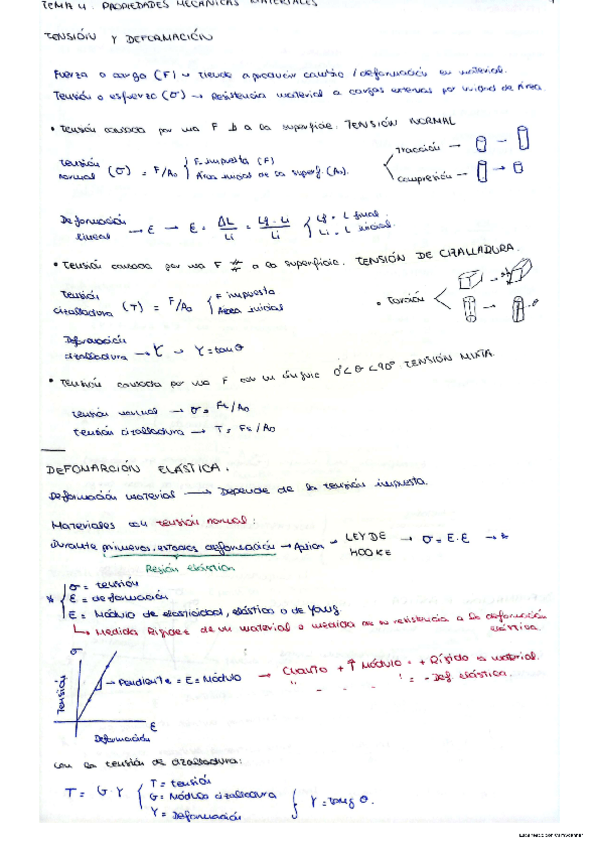 TEMA 4. PROPIEDADES MECÁNICAS MATERIALES
TENSIÓN Y DEFORMACIÓN
Fuerza o carga (F) → tiende a producir cambio / deformación en material.
Tensión o esfuerzo (σ) → Resistencia material a cargas externas por unidad de área.
• Tensión causada por una F ⊥ a la superficie. TENSIÓN NORMAL
Tensión normal (σ) = F/A₀ { F impuesta (F)
Área inicial de la superf. (A₀).
Tracción →
Compresión →
Deformación lineal → ε → ε = ΔL/Li = Lf - Li/Li { Lf = L final
Li = L inicial.
• Tensión causada por una F // a la superficie. TENSIÓN DE CIZALLADURA.
Tensión cizalladura (T) = F/A₀ { F impuesta
Área inicial
• Torsión
Deformación cizalladura → γ → γ = tan θ
• Tensión causada por una F con un ángulo 0°<θ<90° TENSIÓN MIXTA
Tensión normal → σ = /A₀
Tensión cizalladura → T = /A₀
DEFOMARCIÓN ELÁSTICA.
Deformación material → Depende de la tensión impuesta.
Materiales con tensión normal:
Durante primeros estados deformación → LEY DE HOOKE → σ = E·ε → *
Región elástica
* { σ = tensión
ε = deformación
E = Módulo de elasticidad, elástico o de Young
↳ Medida Rigidez de un material o medida de su resistencia a la deformación elástica.
σ
Tensión
Pendiente = E = Módulo → Cuanto + ↑ Módulo = + Rígido es material.
" = - Def elástica.
ε
Deformación
Con la tensión de cizalladura:
T = G·γ { T = tensión
G = Módulo cizalladura
γ = Deformación } γ = tang θ.